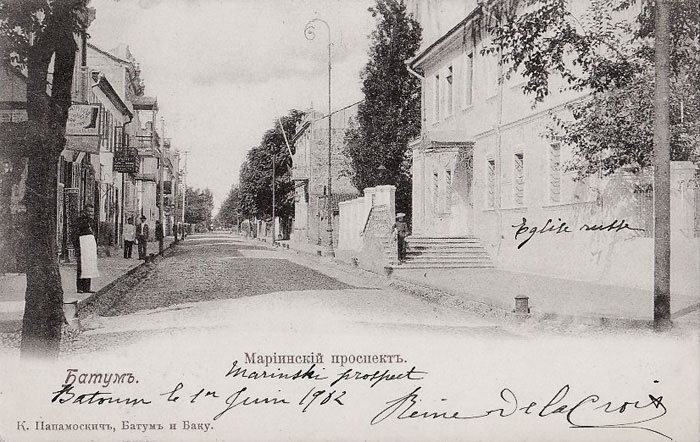 Eglise russe
Маріинскій проспектъ.
Marinski prospect
Батумъ.
Batoum le 1er Juin 1902
Reine de la Croix
К. Папамоскичъ, Батумъ и Баку.